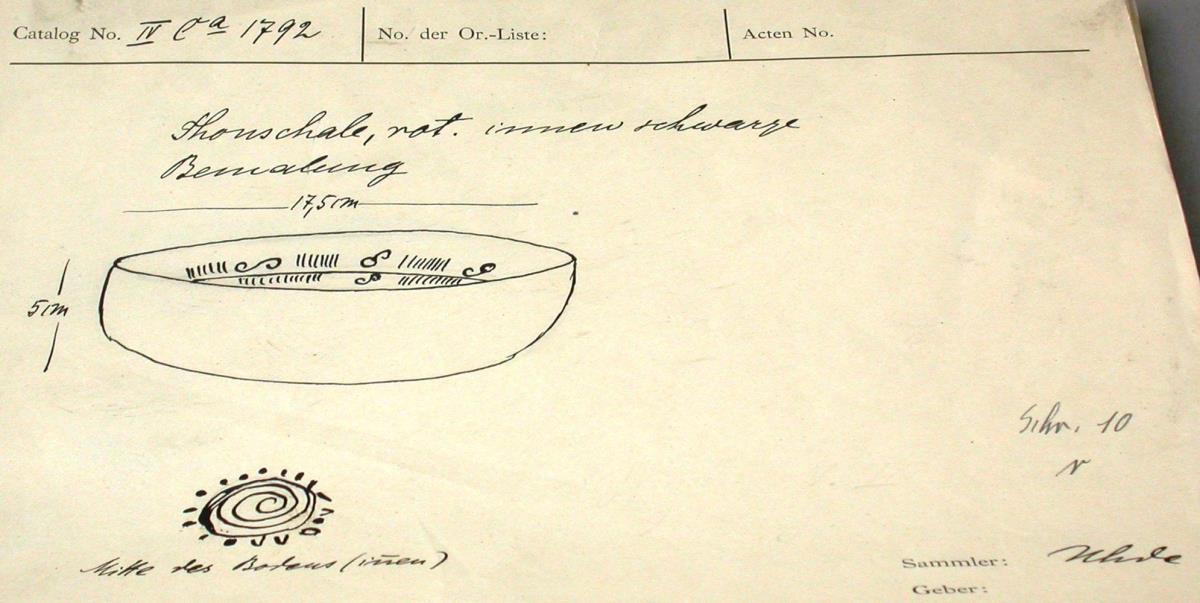 Catalog No. IV Ca 1792 No. der Or.-Liste: Acten No.
Thonschale, rot. innen schwarze
Bemalung
17,5 cm
5 cm
Schr. 10
r
Mitte des Bodens (iñen)
Sammler: Uhde
Geber: